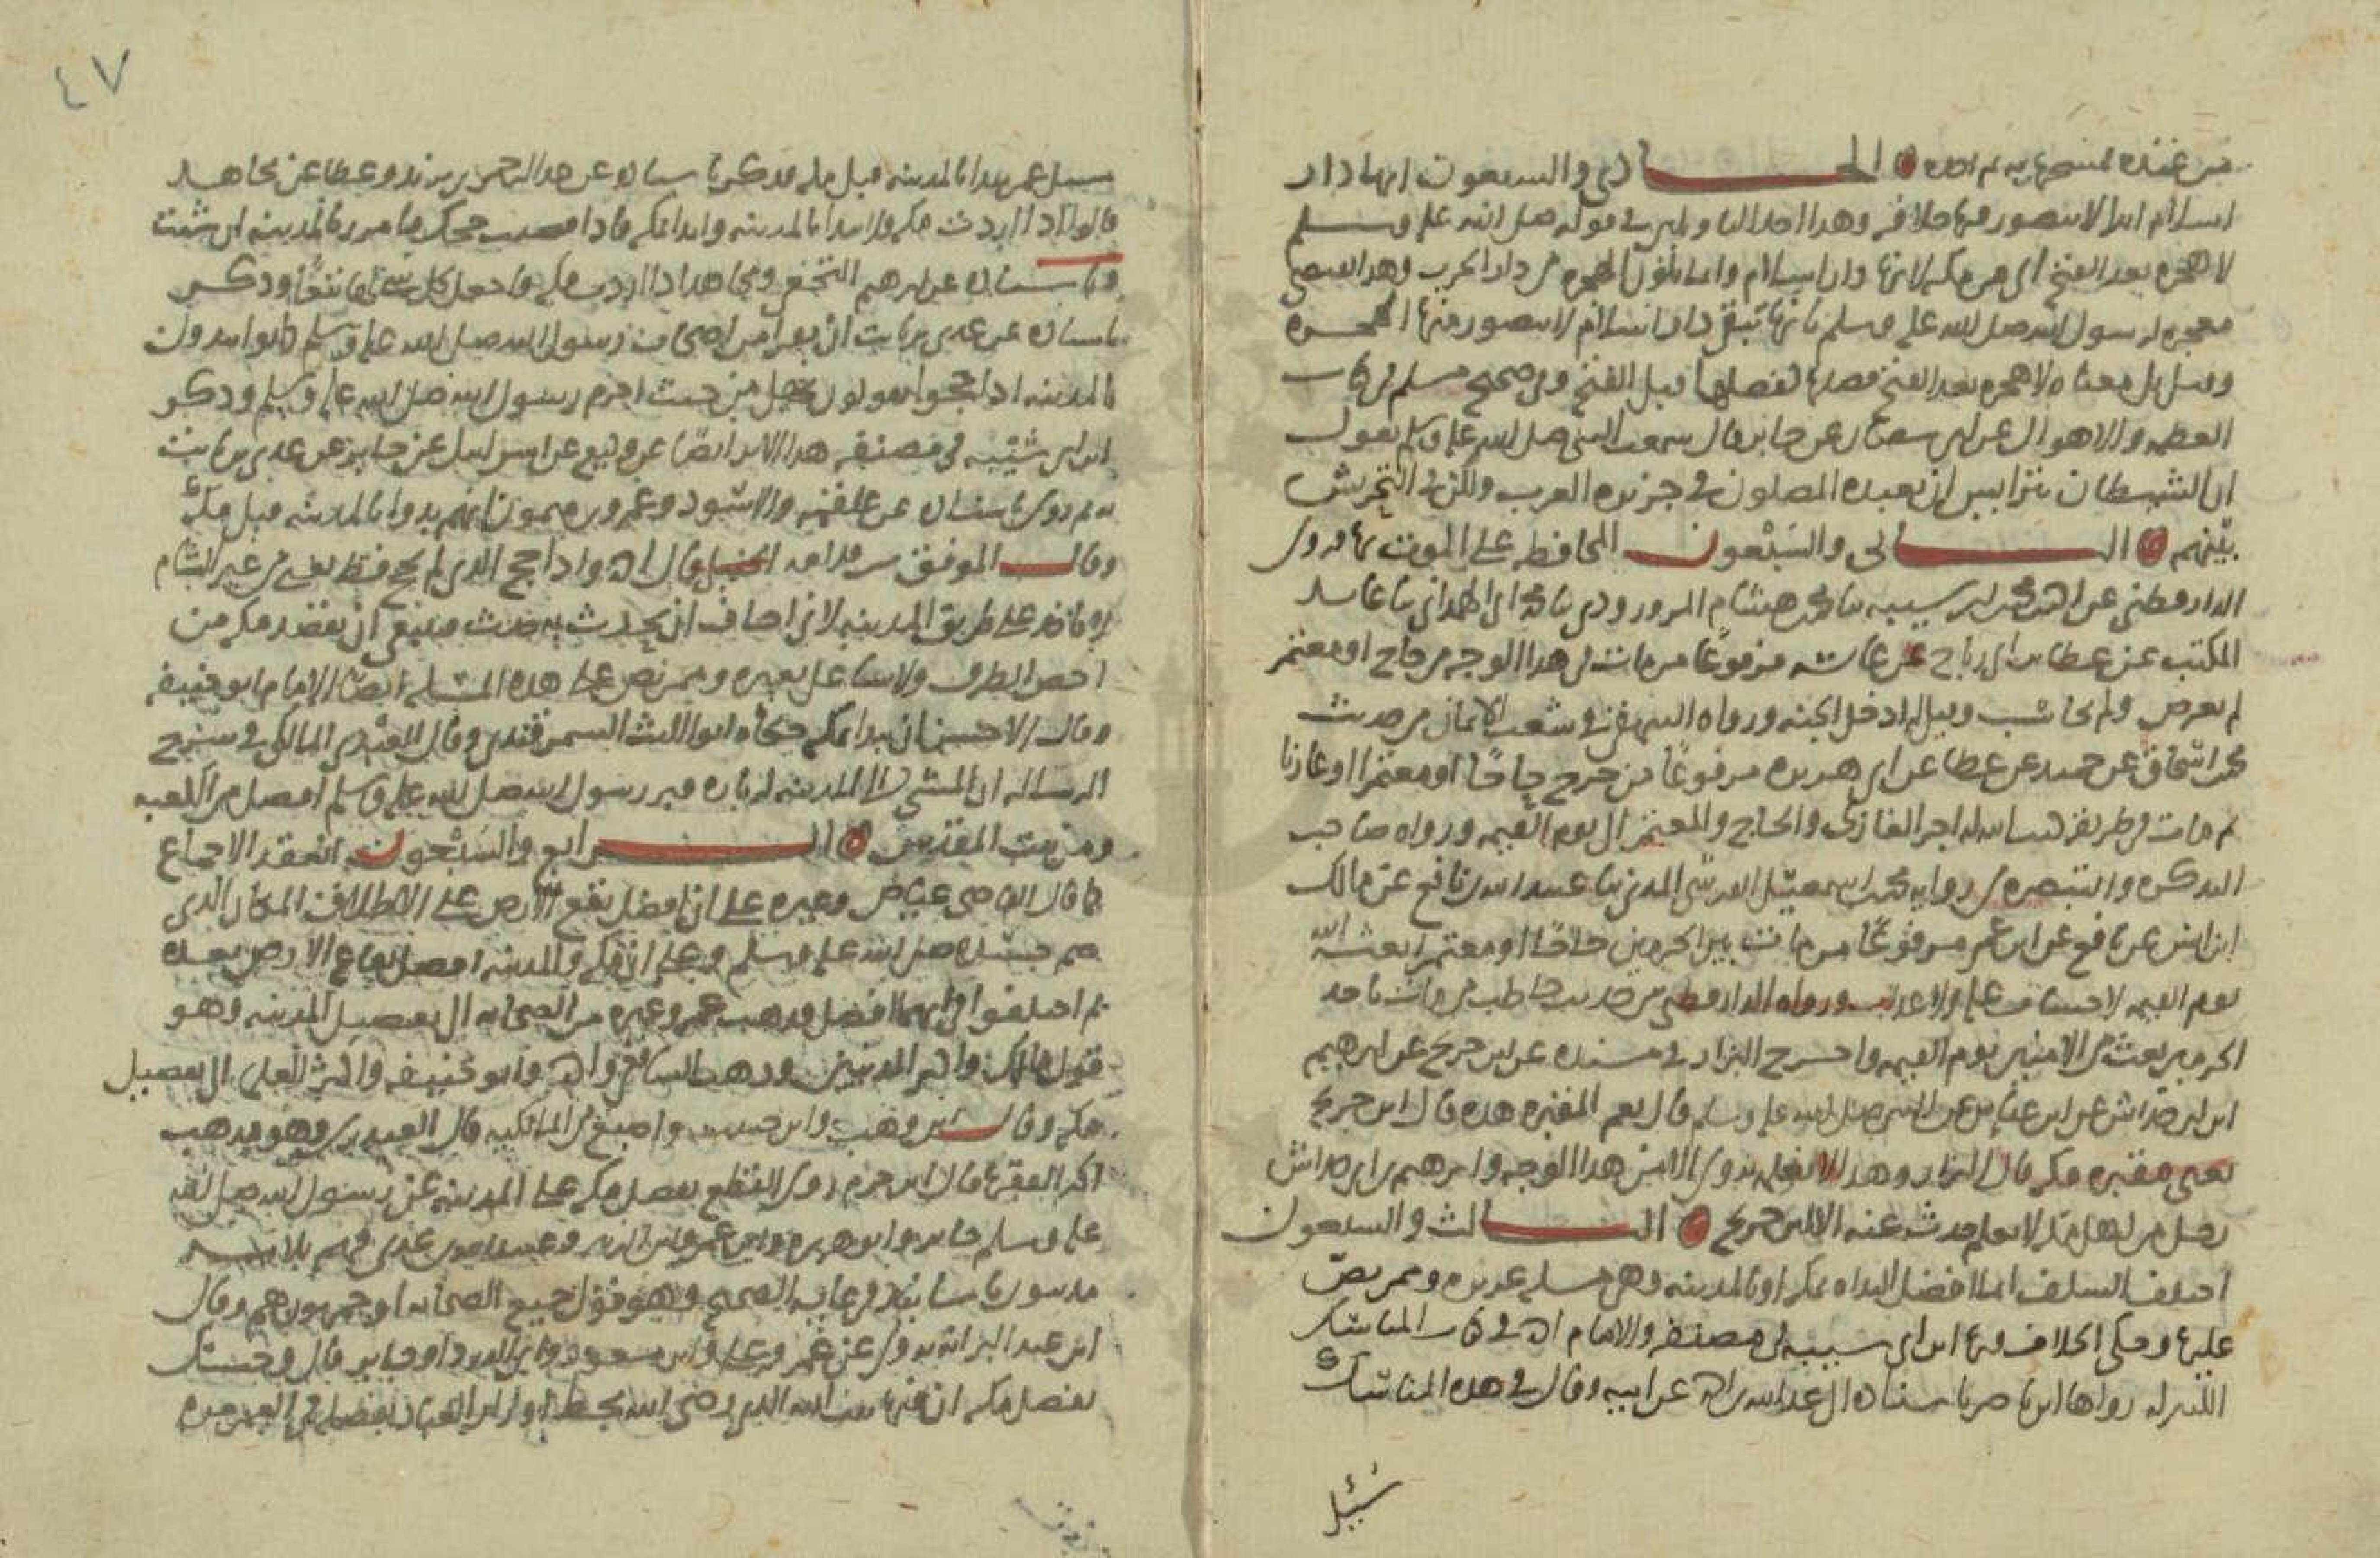 الحادي والسبعون انها دار
اسلام ابدا لا يتصور منها خلافه وهذا احد التاويلين في قوله صلى الله عليه وسلم
لا هجره بعد الفتح اي من مكه لانها دار اسلام وانما تكون الهجره من دار الحرب وهذا يتضمن
معجزه لرسول الله صلى الله عليه وسلم بانها تبقى دار اسلام لا يتصور منها الهجره
وقيل بل معناه لا هجره بعد الفتح فضلها كفضلها قبل الفتح وفي صحيح مسلم في باب
العظمه والاهوال عن ابي سفيان عن جابر قال سمعت النبي صلى الله عليه وسلم يقول
ان الشيطان قد ايس ان يعبده المصلون في جزيره العرب ولكن في التحريش
بينهم الثاني والسبعون المحافظه على الموت بها فروى
الدارقطني عن محمد بن هشام المروروذي بنا محمد الهمداني بنا عايد
المكتب عن عطا بن ابي رباح عن عايشه مرفوعا من مات في هذا الوجه من حاج او معتمر
لم يعرض ولم يحاسب وقيل له ادخل الجنه ورواه البيهقي في شعب الايمان من حديث
محمد بن اسحاق عن حميد عن عطا عن ابي هريره مرفوعا من خرج حاجا او معتمرا او غازيا
ثم مات في طريقه كتب الله له اجر الغازي والحاج والمعتمر الى يوم القيمه ورواه صاحب
التذكره والتبصره من روايه محمد بن اسمعيل المدني بنا عبد الله بن نافع عن مالك
ابن انس عن نافع عن ابن عمر مرفوعا من مات بين الحرمين حاجا او معتمرا بعثه الله
يوم القيمه لا حساب عليه ولا عذاب ورواه الدارقطني من حديث حاطب من مات باحد
الحرمين بعث من الامنين يوم القيمه واخرج البزار في مسنده عن ابن جريج عن ابرهيم
ابن ابي خداش عن ابن عباس عن النبي صلى الله عليه وسلم قال نعم المقبره هذه قال ابن جريج
يعني مقبره مكه قال البزار وهذا لا نعلمه يروى الا من هذا الوجه وابرهيم بن ابي خداش
رجل من اهل مكه لا نعلم حدث عنه الا ابن جريج الثالث والسبعون
اختلف السلف ايما افضل البداه بمكه او بالمدينه وهي مسله عزيزه وممن نص
عليها وحكى الخلاف فيها ابن ابي شيبه في مصنفه والامام احمد في كتاب المناسك
الكبير له رواها ابن ناصر باسناده الى عبد الله بن احمد عن ابيه وقال في هذه المناسك
سئل
٤٧
سئل عمن يبدا بالمدينه قبل مكه فذكر باسناده عن عبد الرحمن بن يزيد وعطا عن مجاهد
قالوا اذا اردت مكه فلا تبدا بالمدينه وابدا بمكه فاذا قضيت حجك فامرر بالمدينه ان شئت
وباسناده عن ابرهيم النخعي ومجاهد اذا اردت مكه فاجعل كل شي لها تبعا وذكر
باسناده عن عدي بن ثابت ان نفرا من اصحاب رسول الله صلى الله عليه وسلم كانوا يبدون
بالمدينه اذا حجوا يقولون نهل من حيث احرم رسول الله صلى الله عليه وسلم وذكر
ابن ابي شيبه في مصنفه هذا الاثر ايضا عن وكيع عن اسرائيل عن جابر عن عدي بن ثابت
ثم روى باسناده عن علقمه والاسود وعمرو بن ميمون انهم بدوا بالمدينه قبل مكه
وقال الموفق بن قدامه الحنبلي قال احمد واذا حج الذي لم يحج قط يعني من غير الشام
لا ياخذ على طريق المدينه لاني اخاف ان يحدث به حدث فينبغي ان يقصد مكه من
اخصر الطرق ولا يتشاغل بغيره وممن نص على هذه المسله ايضا الامام ابو حنيفه
وقال الاحسن ان يبدا بمكه حكاه ابو الليث السمرقندي وقال العبدي المالكي في شرح
الرساله ان المشي الى المدينه لزياره قبر رسول الله صلى الله عليه وسلم افضل من الكعبه
ومن بيت المقدس الرابع والسبعون انعقد الاجماع
كما قال القاضي عياض وغيره على ان افضل بقع الارض على الاطلاق المكان الذي
ضم جسده صلى الله عليه وسلم وعلى ان مكه والمدينه افضل بقاع الارض بعده
ثم اختلفوا في ايهما افضل فذهب عمر وغيره من الصحابه الى تفضيل المدينه وهو
قول مالك واكثر المدنيين وذهب الشافعي واحمد وابو حنيفه واكثر العلما الى تفضيل
مكه وقال ابن وهب وابن حبيب واصبغ من المالكيه قال العبدري وهو مذهب
اكثر الفقها قال ابن حزم روى القطع بفضل مكه على المدينه عن رسول الله صلى الله
عليه وسلم جابر وابو هريره وابن عمر وابن الزبير وعبد الله بن عدي
باسانيد في غايه الصحه وهو قول جميع الصحابه او جمهورهم وقال
ابن عبد البر انه يروى عن عمر وعلي وابن مسعود وابي الدردا وجابر قال وحسبك
بفضل مكه ان فيها بيت الله الذي رضي الله بحط اوزار العباد بقصده في العمر مره